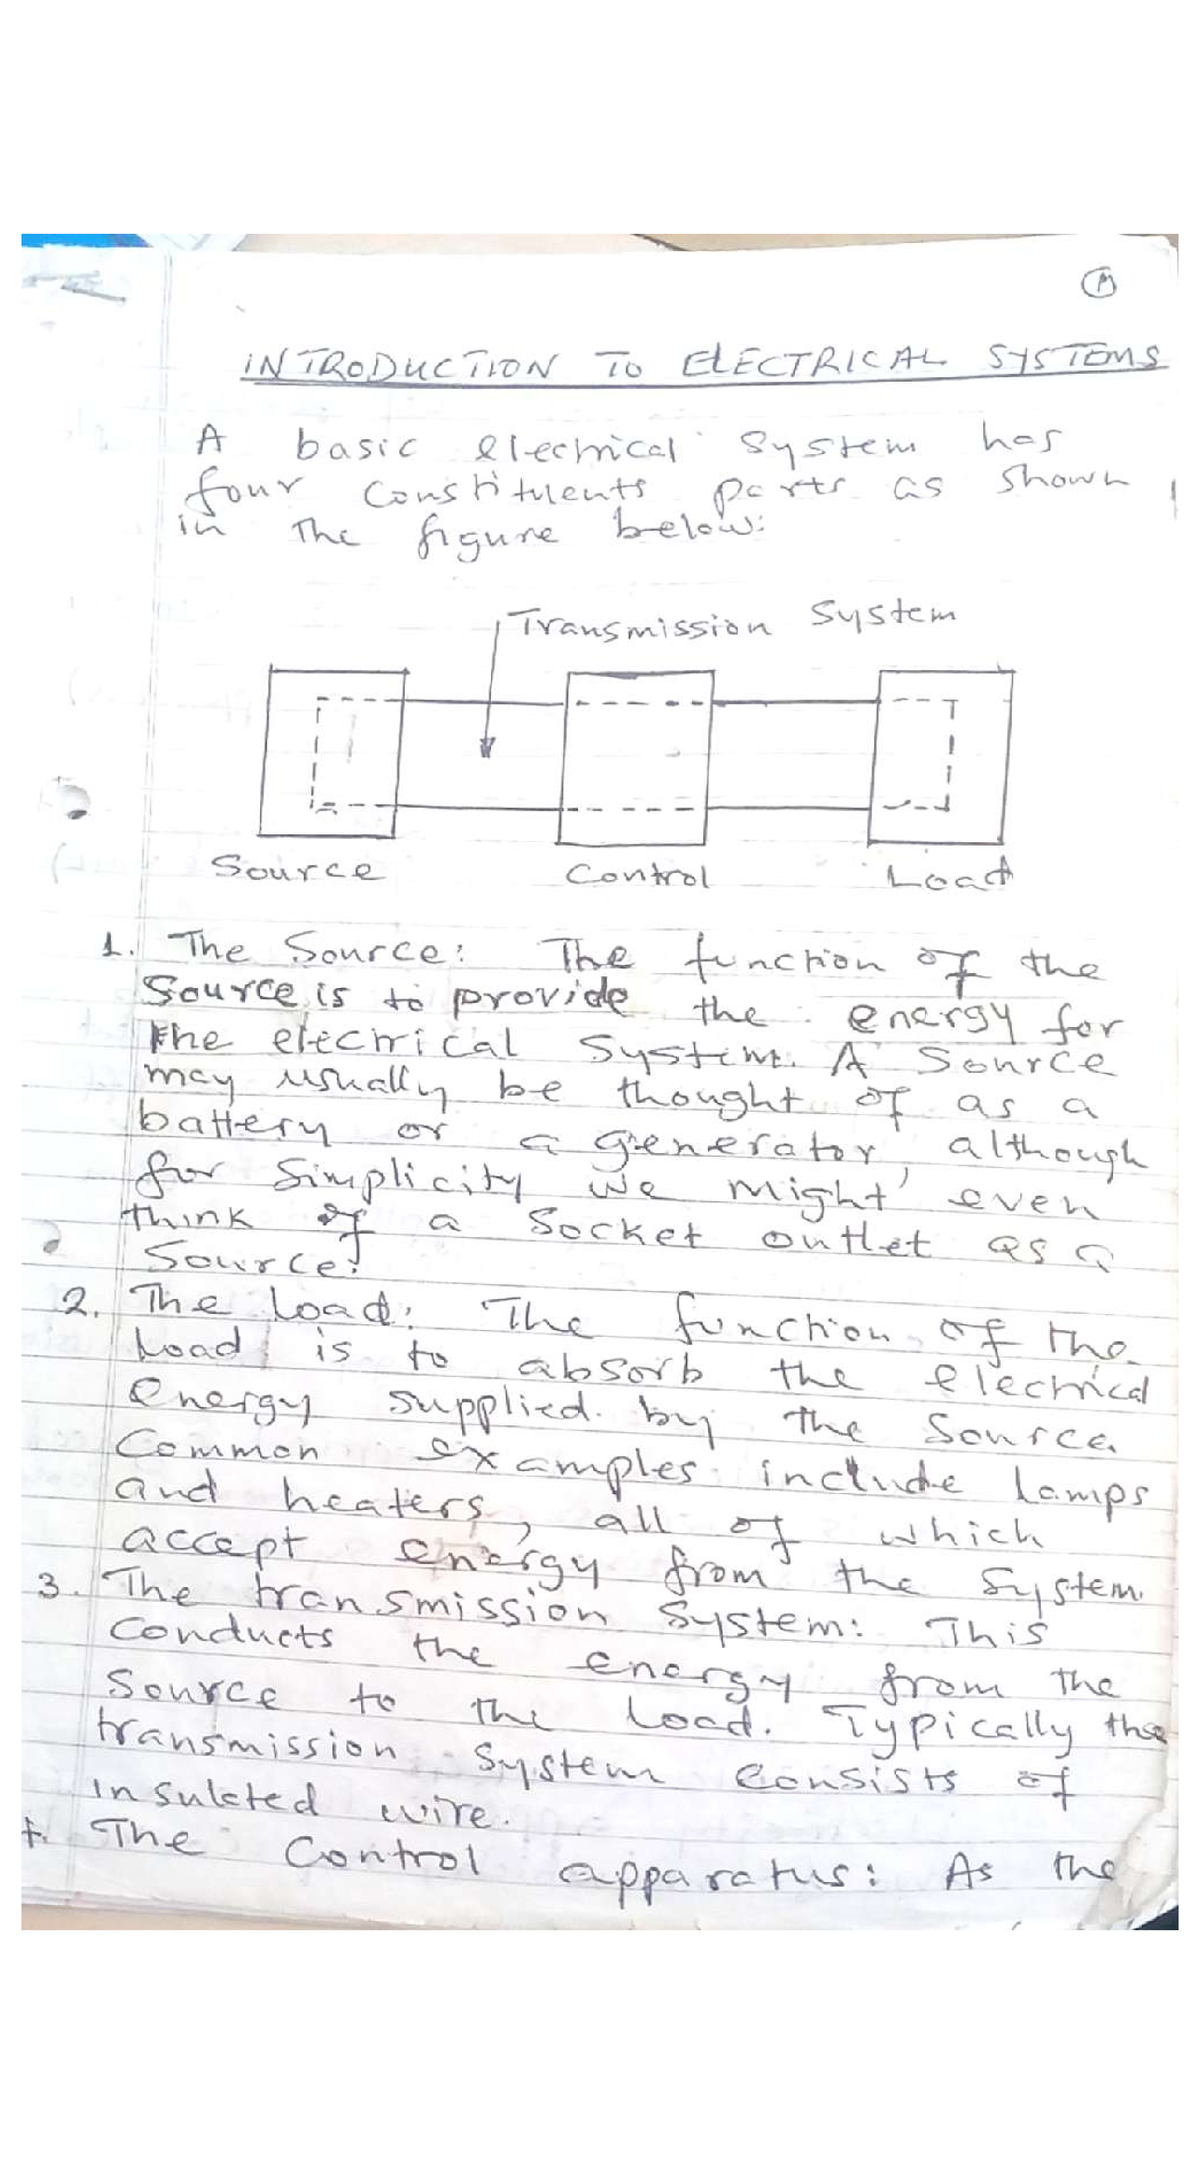 INTRODUCTION TO ELECTRICAL SYSTEMS
A basic electrical system has
four constituents parts as shown
in the figure below:
Transmission System
Source Control Load
1. The Source: The function of the
Source is to provide the energy for
the electrical system. A Source
may usually be thought of as a
battery or a generator, although
for simplicity we might even
think of a socket outlet as a
Source.
2. The Load: The function of the
Load is to absorb the electrical
energy supplied by the Source.
Common examples include lamps
and heaters, all of which
accept energy from the system.
3. The transmission System: This
Conducts the energy from the
Source to the Load. Typically the
transmission System consists of
insulated wire.
The Control apparatus: As the